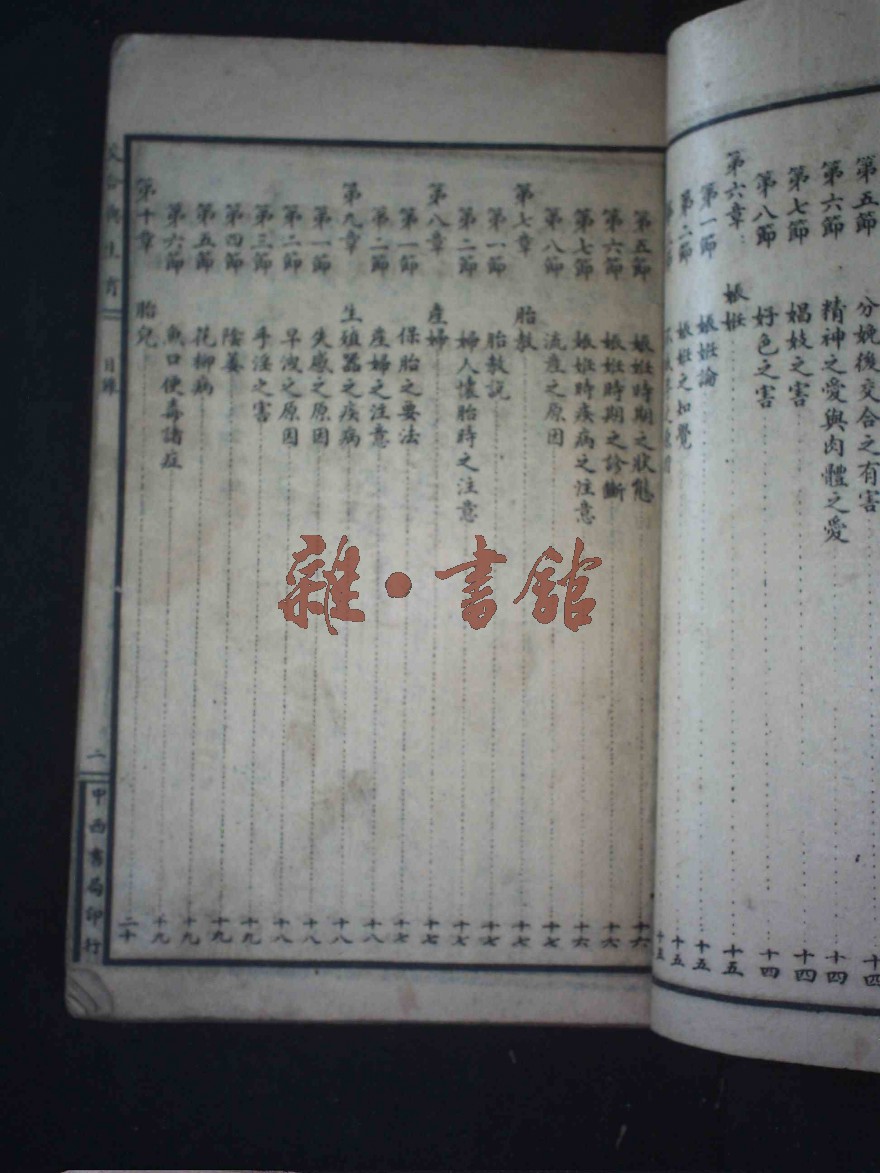 第五節 分娩後交合之有害 十四
第六節 精神之愛與肉體之愛 十四
第七節 娼妓之害 十四
第八節 好色之害 十四
第六章 娠姙 十五
第一節 娠姙論 十五
第二節 娠姙之知覺 十五
十五
第五節 娠姙時期之狀態 十六
第六節 娠姙時期之診斷 十六
第七節 娠姙時疾病之注意 十六
第八節 流產之原因 十七
第七章 胎教 十七
第一節 胎教説 十七
第二節 婦人懷胎時之注意 十七
第八章 產婦 十七
第一節 保胎之要法 十七
第二節 產婦之注意 十八
第九章 生殖器之疾病 十八
第一節 失感之原因 十八
第二節 早洩之原因 十八
第三節 手淫之害 十九
第四節 陰萎 十九
第五節 花柳病 十九
第六節 魚口便毒諸症 十九
第十章 胎兒 二十
合與生育 目錄 二 中西書局印行
雜·書館